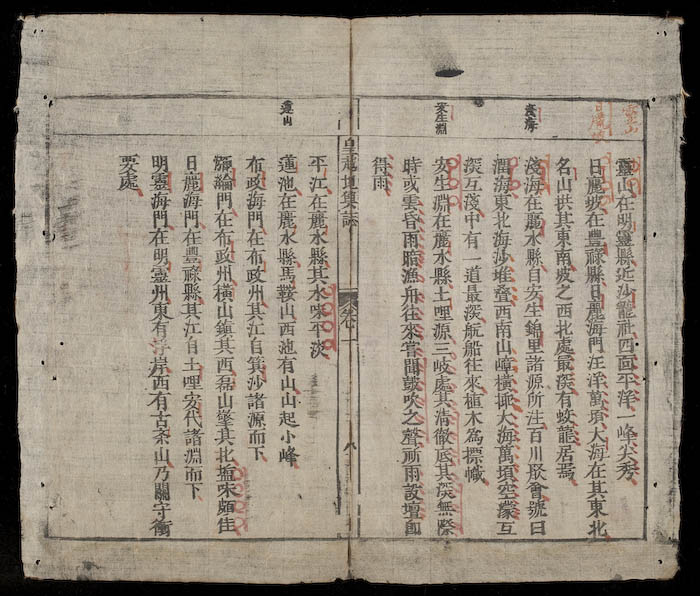 靈山在明靈縣近沙龍社四面平洋一峰尖秀
日麗坡在豐祿縣日麗海門汪洋萬頃大海在其東北
名山拱其東南坡之西北處最深有蛟龍居焉
淺海在麗水縣自安生錦里諸源所注百川聚會號曰
海東北海沙堆疊西南山嶂橫掫大海萬頃空濛互
深互淺中有一道最深航船往來植木為標幟
安生淵在麗水縣土哩源三岐處其清徹底其深無際
時或雲昏雨暗漁舟往來嘗聞鼓吹之聲祈雨設壇即
得雨
靈山
日麗坡
淺海
安生淵
皇越地輿誌
卷一
八
平江在麗水縣其水味平淡
蓮池在麗水縣馬鞍山西池有山山起小峰
布政海門在布政州其江自箕沙諸源而下
綸門在布政州橫山鎮其西磊山擎其北塩味頗佳
日麗海門在豐祿縣其江自土哩安代諸淵而下
明靈海門在明靈州東有浮岸西有古齋山乃關守衝
要處
蓮山